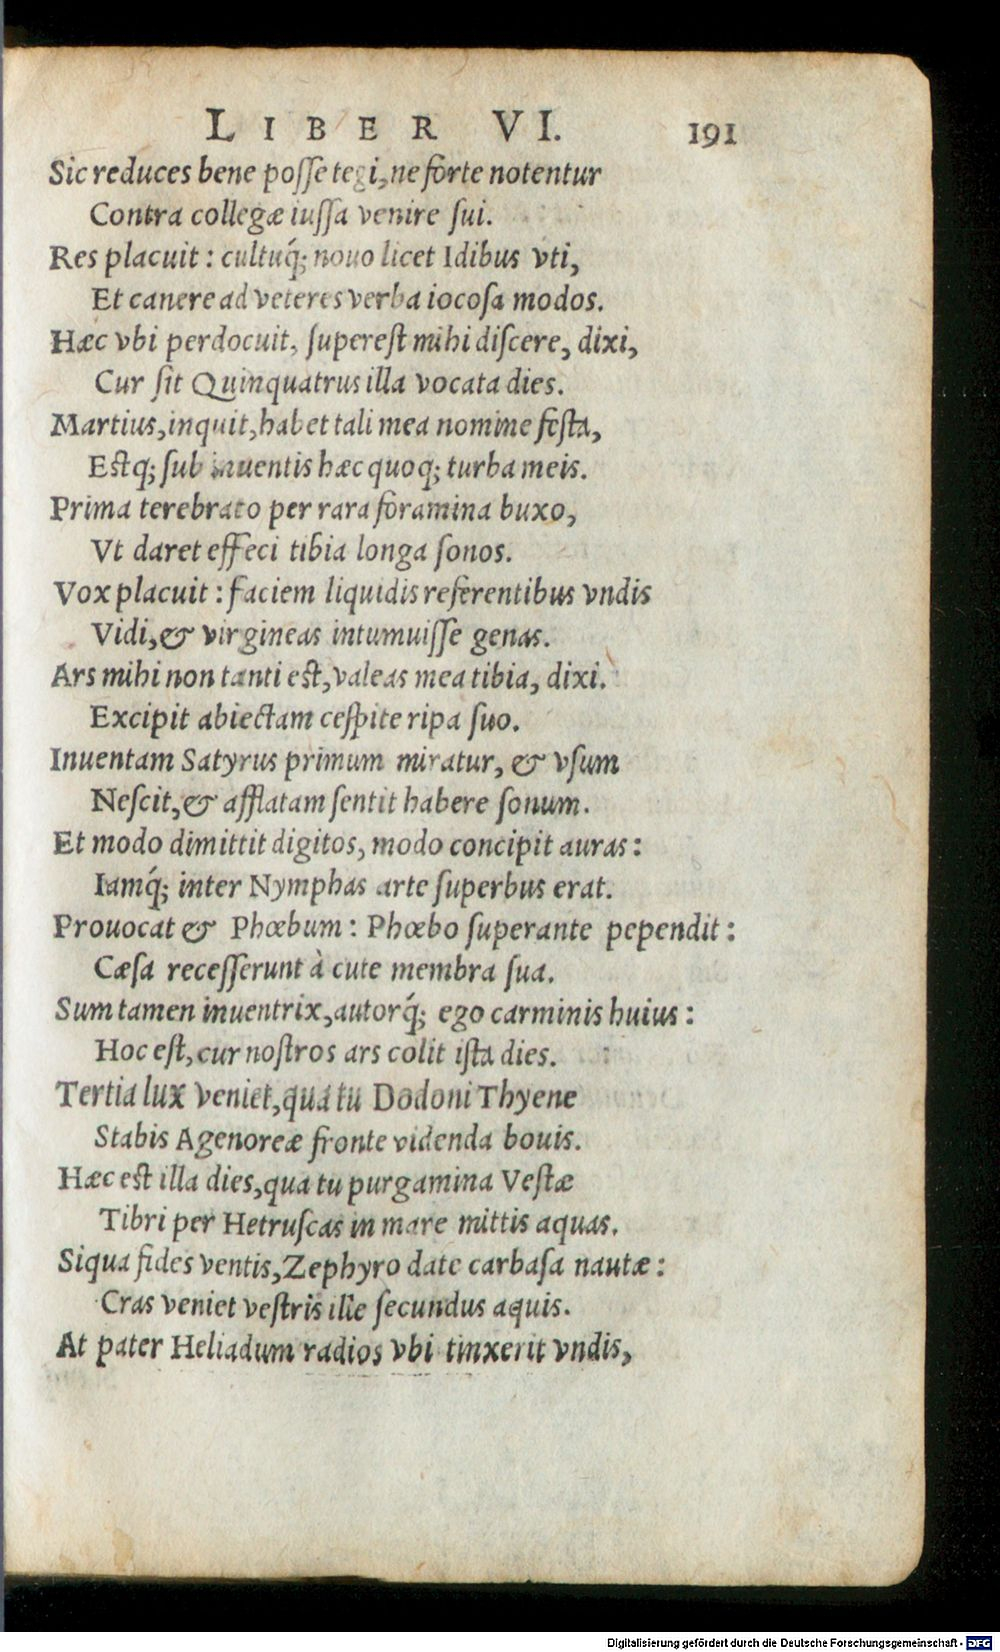 LIBER VI. 191
Sic reduces bene posse tegi, ne forte notentur
Contra collegæ iussa venire sui.
Res placuit: cultuq́; nouo licet Idibus vti,
Et canere ad veteres verba iocosa modos.
Hæc vbi perdocuit, superest mihi discere, dixi,
Cur sit Quinquatrus illa vocata dies.
Martius, inquit, habet tali mea nomine festa,
Estq; sub inuentis hæc quoq; turba meis.
Prima terebrato per rara foramina buxo,
Vt daret effeci tibia longa sonos.
Vox placuit: faciem liquidis referentibus vndis
Vidi, & virgineas intumuisse genas.
Ars mihi non tanti est, valeas mea tibia, dixi.
Excipit abiectam cespite ripa suo.
Inuentam Satyrus primum miratur, & vsum
Nescit, & afflatam sentit habere sonum.
Et modo dimittit digitos, modo concipit auras:
Iamq́; inter Nymphas arte superbus erat.
Prouocat & Phœbum: Phœbo superante pependit:
Cæsa recesserunt à cute membra sua.
Sum tamen inuentrix, autorq́; ego carminis huius:
Hoc est, cur nostros ars colit ista dies.
Tertia lux veniet, qua tu Dodoni Thyene
Stabis Agenoreæ fronte videnda bouis.
Hæc est illa dies, qua tu purgamina Vestæ
Tibri per Hetruscas in mare mittis aquas.
Siqua fides ventis, Zephyro date carbasa nautæ:
Cras veniet vestris ille secundus aquis.
At pater Heliadum radios vbi tinxerit vndis,
Digitalisierung gefördert durch die Deutsche Forschungsgemeinschaft - DFG